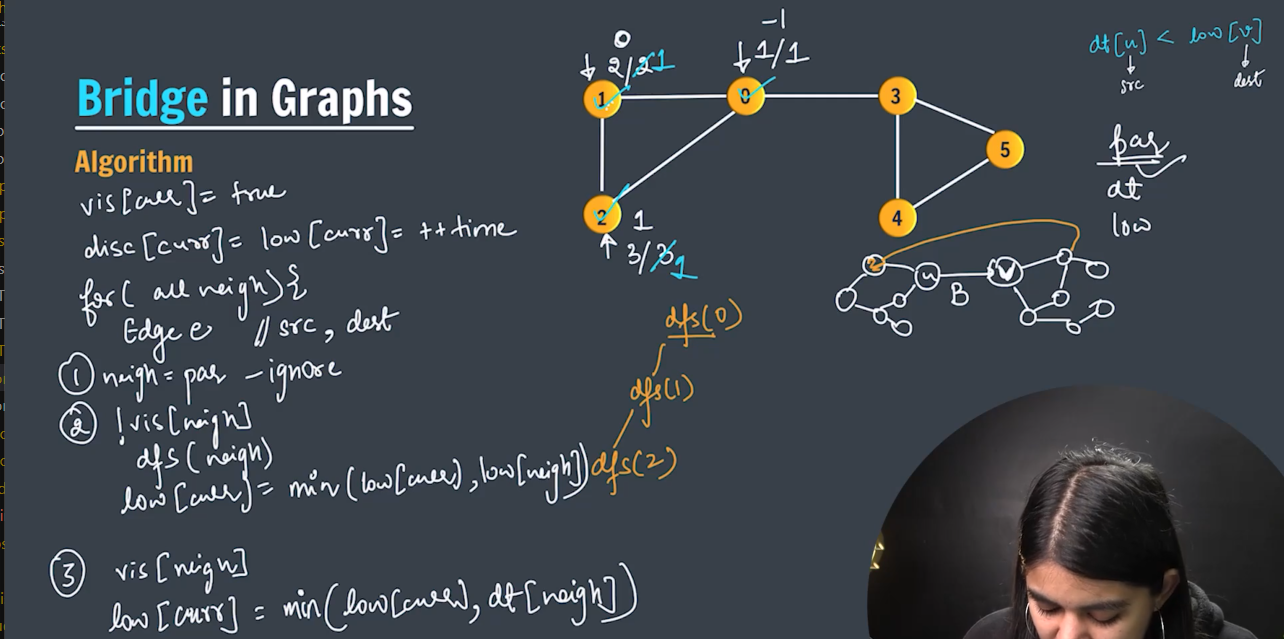 Bridge in Graphs
Algorithm
vis[curr] = true
disc[curr] = low[curr] = ++time
for( all neigh){
Edge e // src, dest
① neigh = par - ignore
② !vis[neigh]
dfs(neigh)
low[curr] = min(low[curr], low[neigh])
③ vis[neigh]
low[curr] = min(low[curr], dt[neigh])
0
2/2 1
-1
1/1
1
0
3
5
2
4
1
3/3 1
dfs(0)
dfs(1)
dfs(2)
dt[u] < low[v]
src
dest
par
dt
low
u
B
V